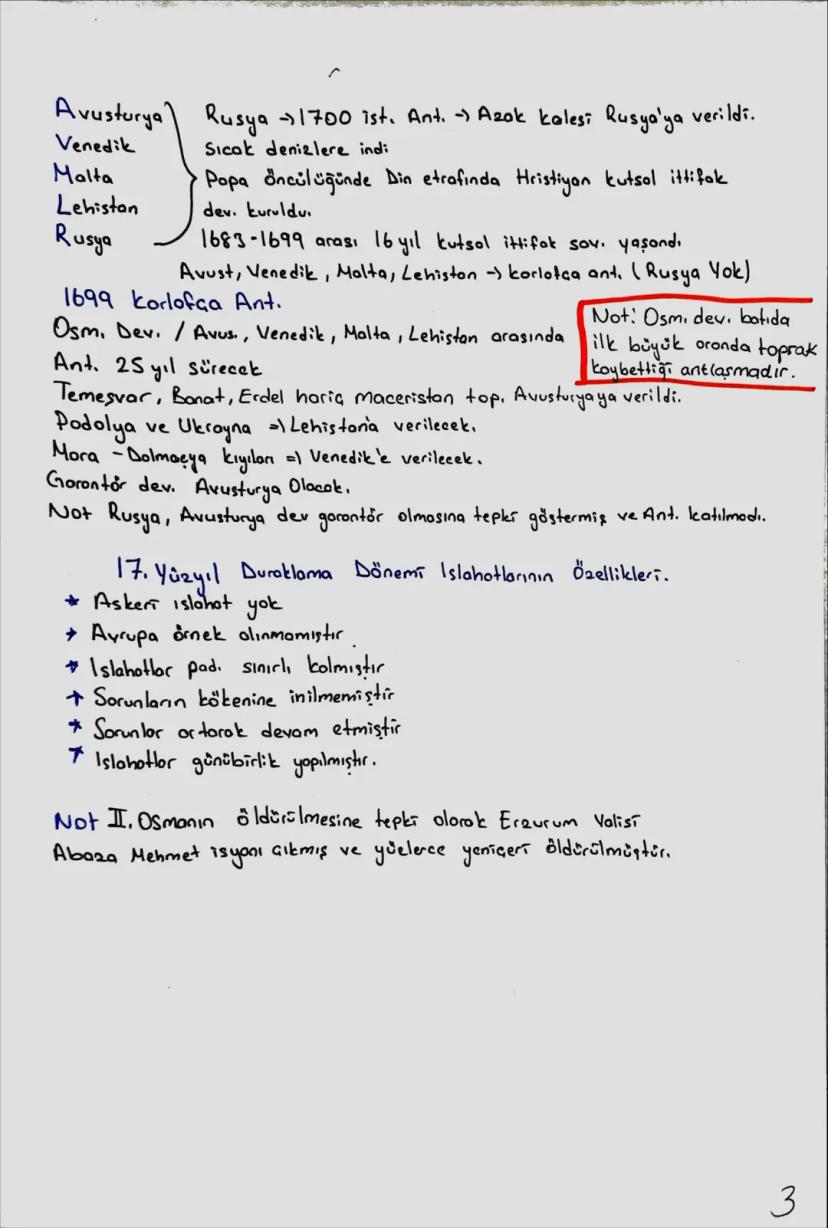 Avusturya
Venedik
Malta
Lehistan
Rusya
Rusya → 1700 ist. Ant. → Azak kalesi Rusya'ya verildi.
Sıcak denizlere indi
Papa öncülüğünde Din etrafında Hristiyan kutsal ittifak
dev. kuruldu.
1683-1699 arası 16 yıl kutsal ittifak sav. yaşandı
Avust, Venedik, Malta, Lehistan → korlofça ant. (Rusya Yok)
1699 Korlofça Ant.
Osm. Dev. / Avus., Venedik, Malta, Lehistan arasında
Ant. 25 yıl sürecek
Not: Osm. dev. batıda
ilk büyük oranda toprak
kaybettiği antlaşmadır.
Temeşvar, Banat, Erdel hariç maceristan top. Avusturyaya verildi.
Podolya ve Ukrayna => Lehistan'a verilecek.
Mora - Dalmaçya kıyıları => Venedik'e verilecek.
Garantör dev. Avusturya Olacak.
Not Rusya, Avusturya dev garantör olmasına tepki göstermiş ve Ant. katılmadı.
17. Yüzyıl Duraklama Dönemi Islahatlarının Özellikleri.
* Askeri ıslahat yok
* Avrupa örnek alınmamıştır.
* Islahatlar pad. sınırlı kalmıştır
* Sorunların kökenine inilmemiştir
* Sorunlar artarak devam etmiştir
* Islahatlar günübirlik yapılmıştır.
Not II. Osmanın öldürülmesine tepki olarak Erzurum Valisi
Abaza Mehmet isyanı çıkmış ve yüzlerce yeniçeri öldürülmüştür.
3